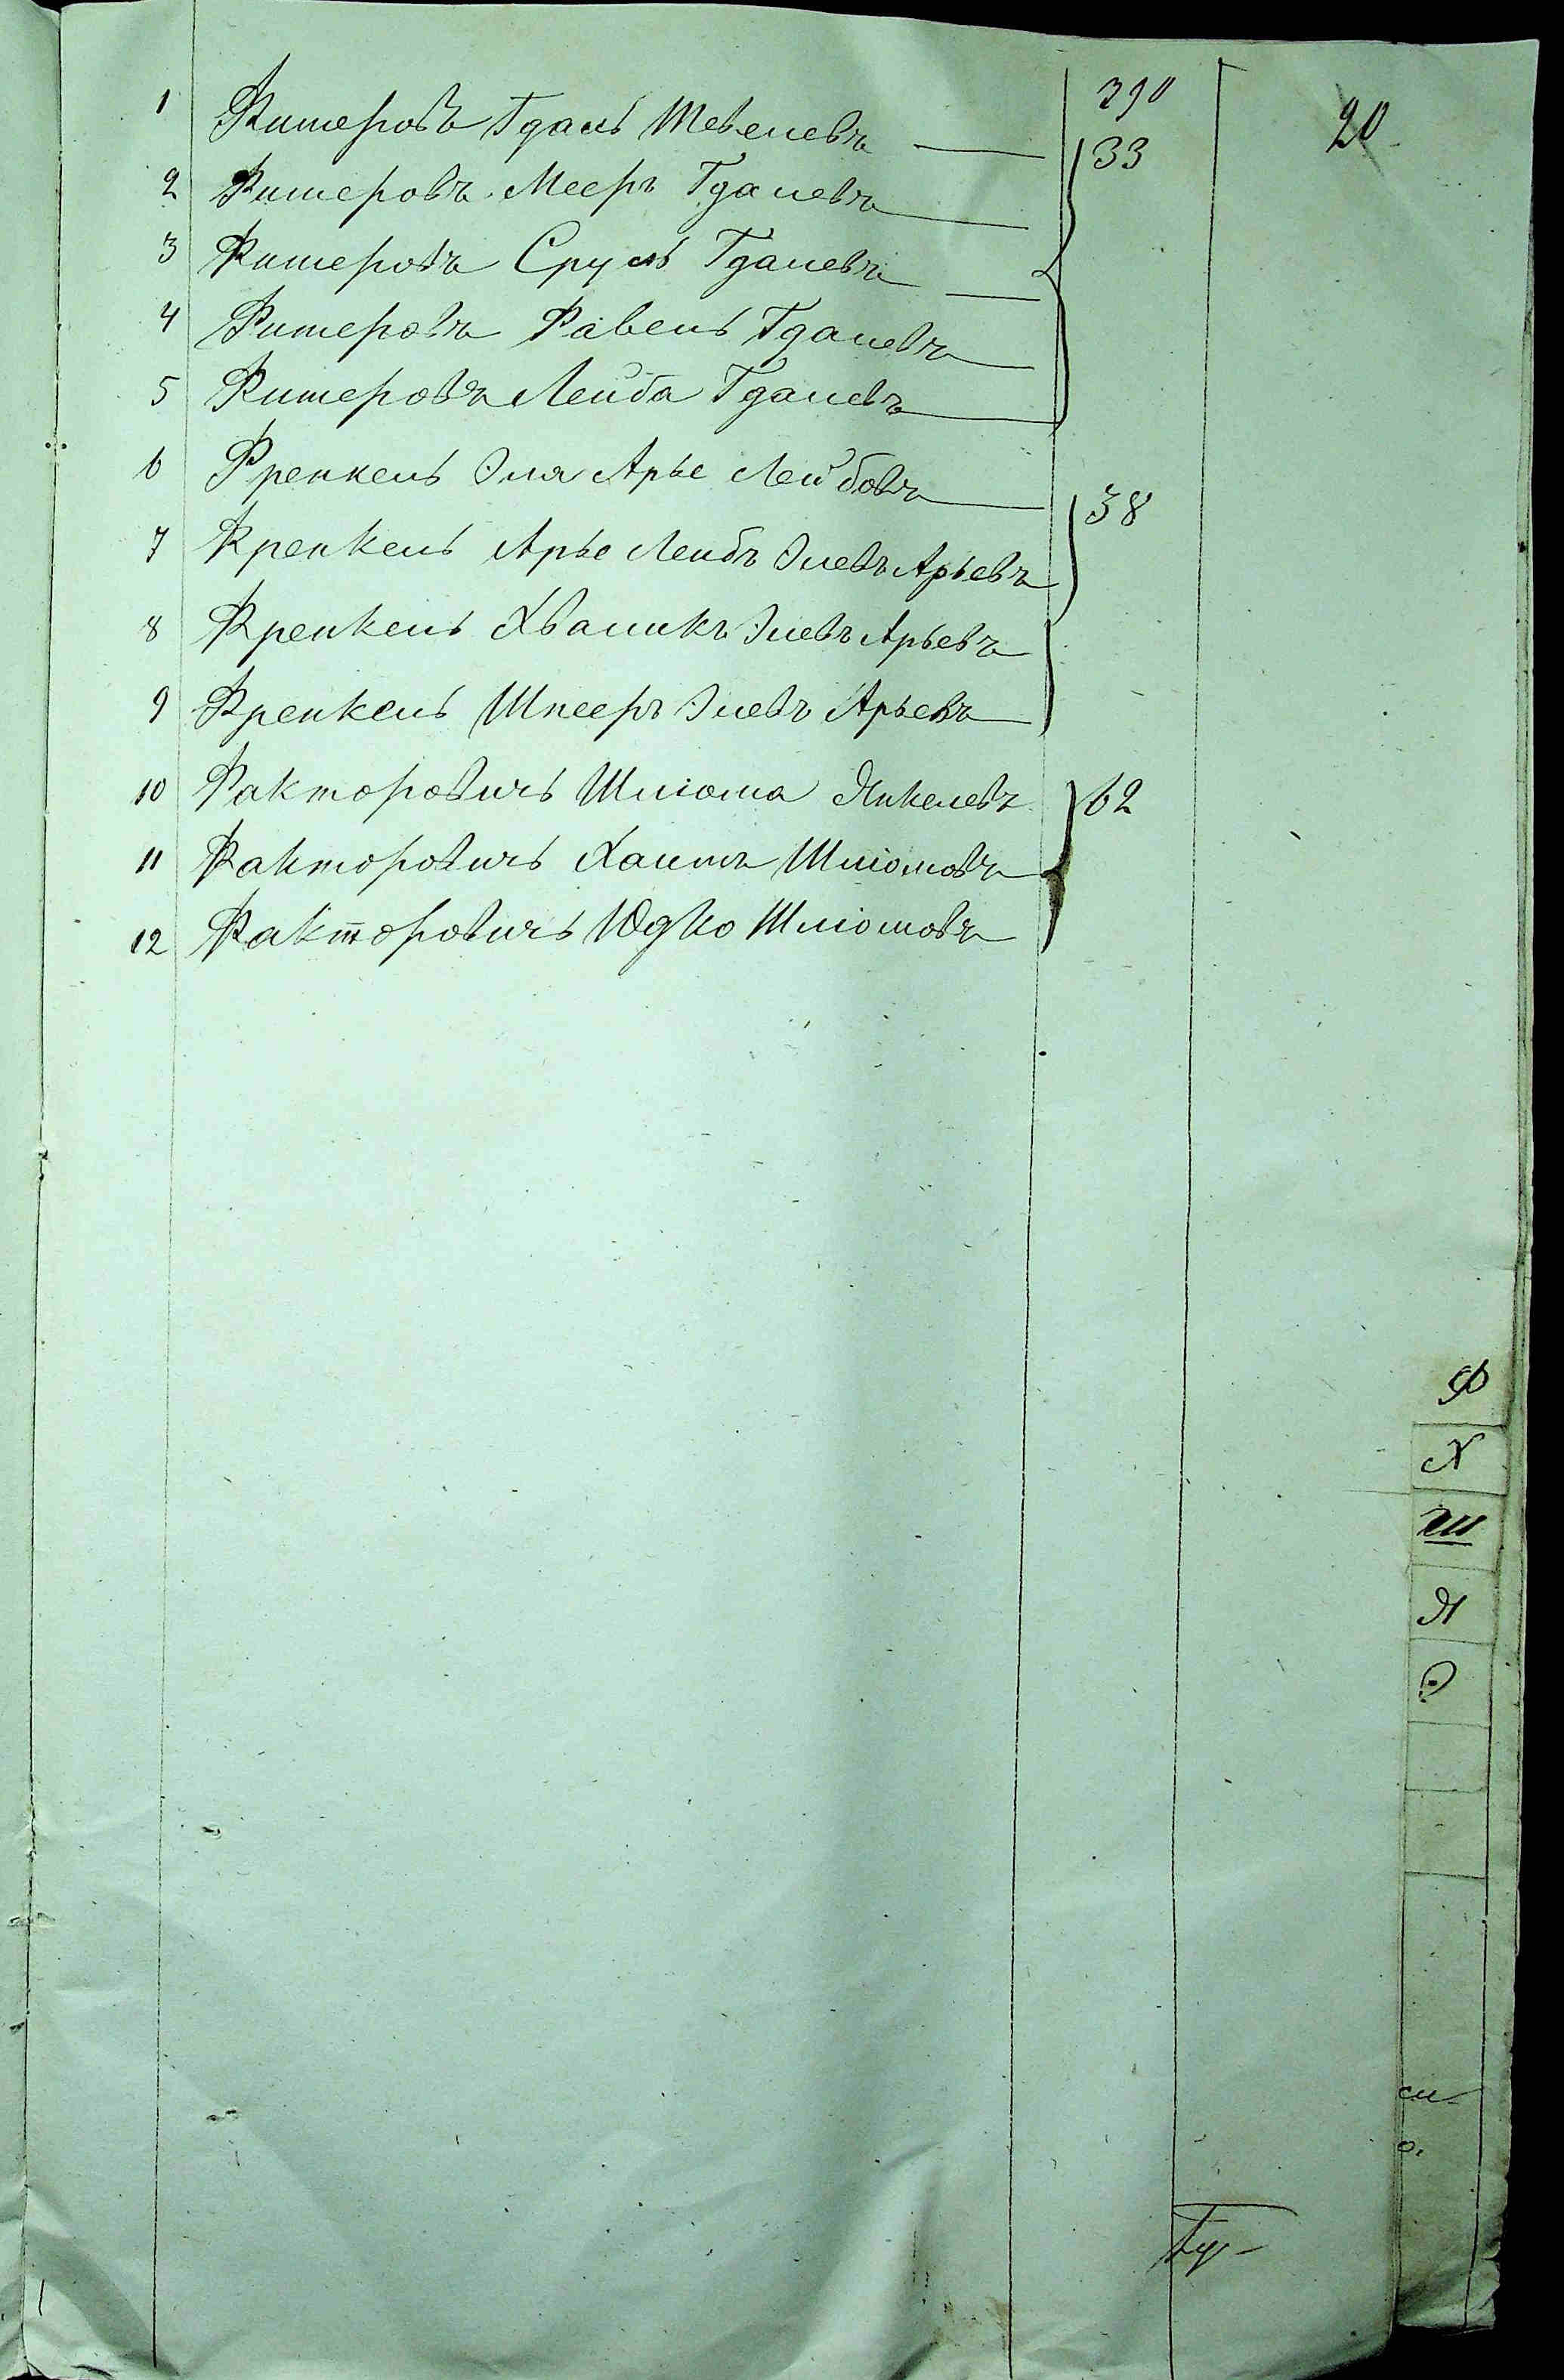 290
20
1 Фитеровъ Гдаль Шевелевъ 33
2 Фитеровъ Мееръ Гдалевъ
3 Фитеровъ Сруль Гдалевъ
4 Фитеровъ Фавель Гдалевъ
5 Фитеровъ Лейба Гдалевъ
6 Френкель Эля Арье Лейбовъ 38
7 Френкель Арье Лейбъ Элевъ Арьевъ
8 Френкель Хваликъ Элевъ Арьевъ
9 Френкель Шнееръ Элевъ Арьевъ
10 Факторовичь Шліома Янкелевъ 62
11 Факторовичь Хаимъ Шліомовъ
12 Факторовичь Юдко Шліомовъ
Ф
Х
Ш
Я
Э